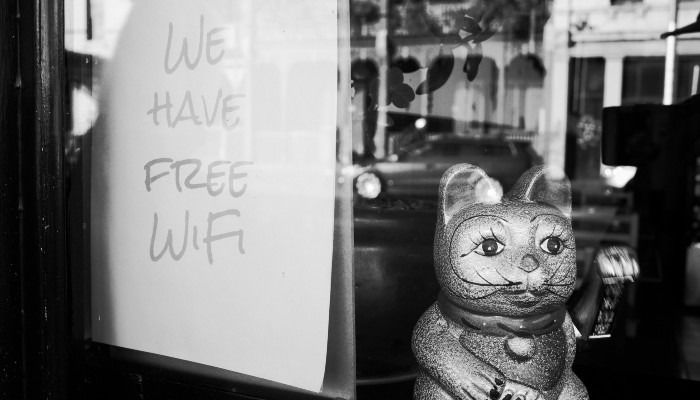 WE
HAVE
FREE
WiFi